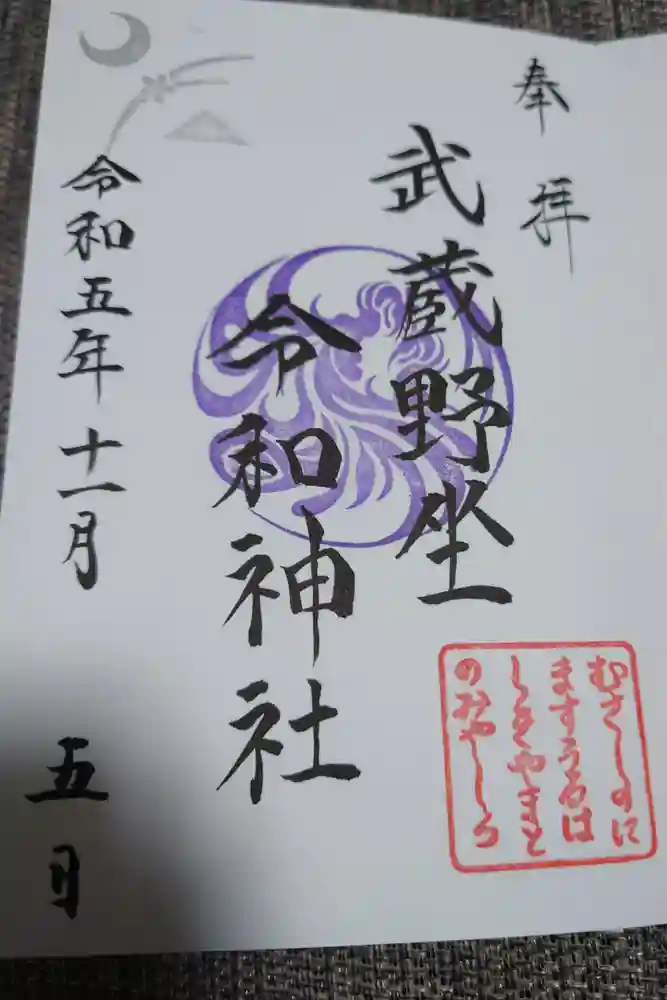 奉拝
武蔵野坐
令和神社
むさしのに
ますうるは
しきやまと
のみやしろ
令和五年十一月
五日